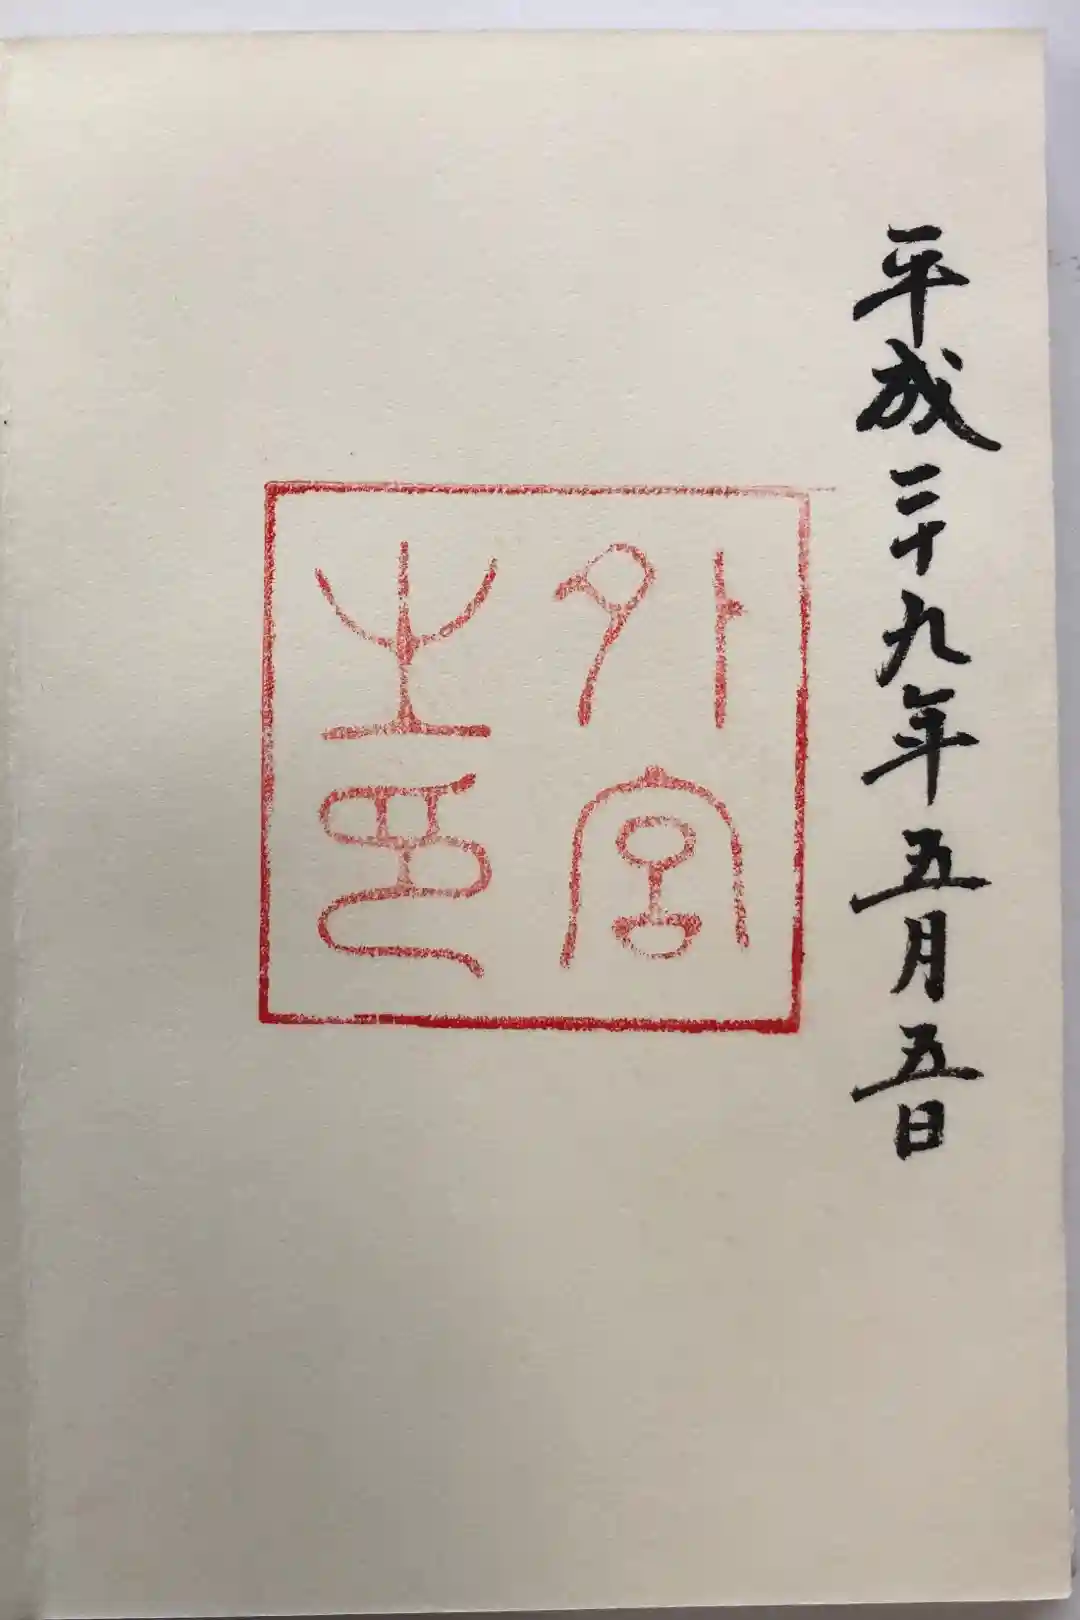 平成二十九年五月五日
外宮
之印